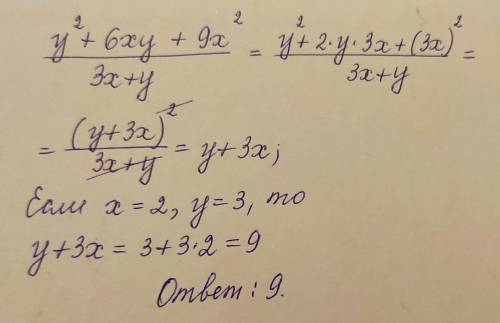 (y² + 6xy + 9x²)/(3x+y) = (y² + 2·y·3x + (3x)²)/(3x+y) =
= (y+3x)²/(3x+y) = y+3x;
Если x = 2, y = 3, то
y+3x = 3+3·2 = 9
Ответ: 9.